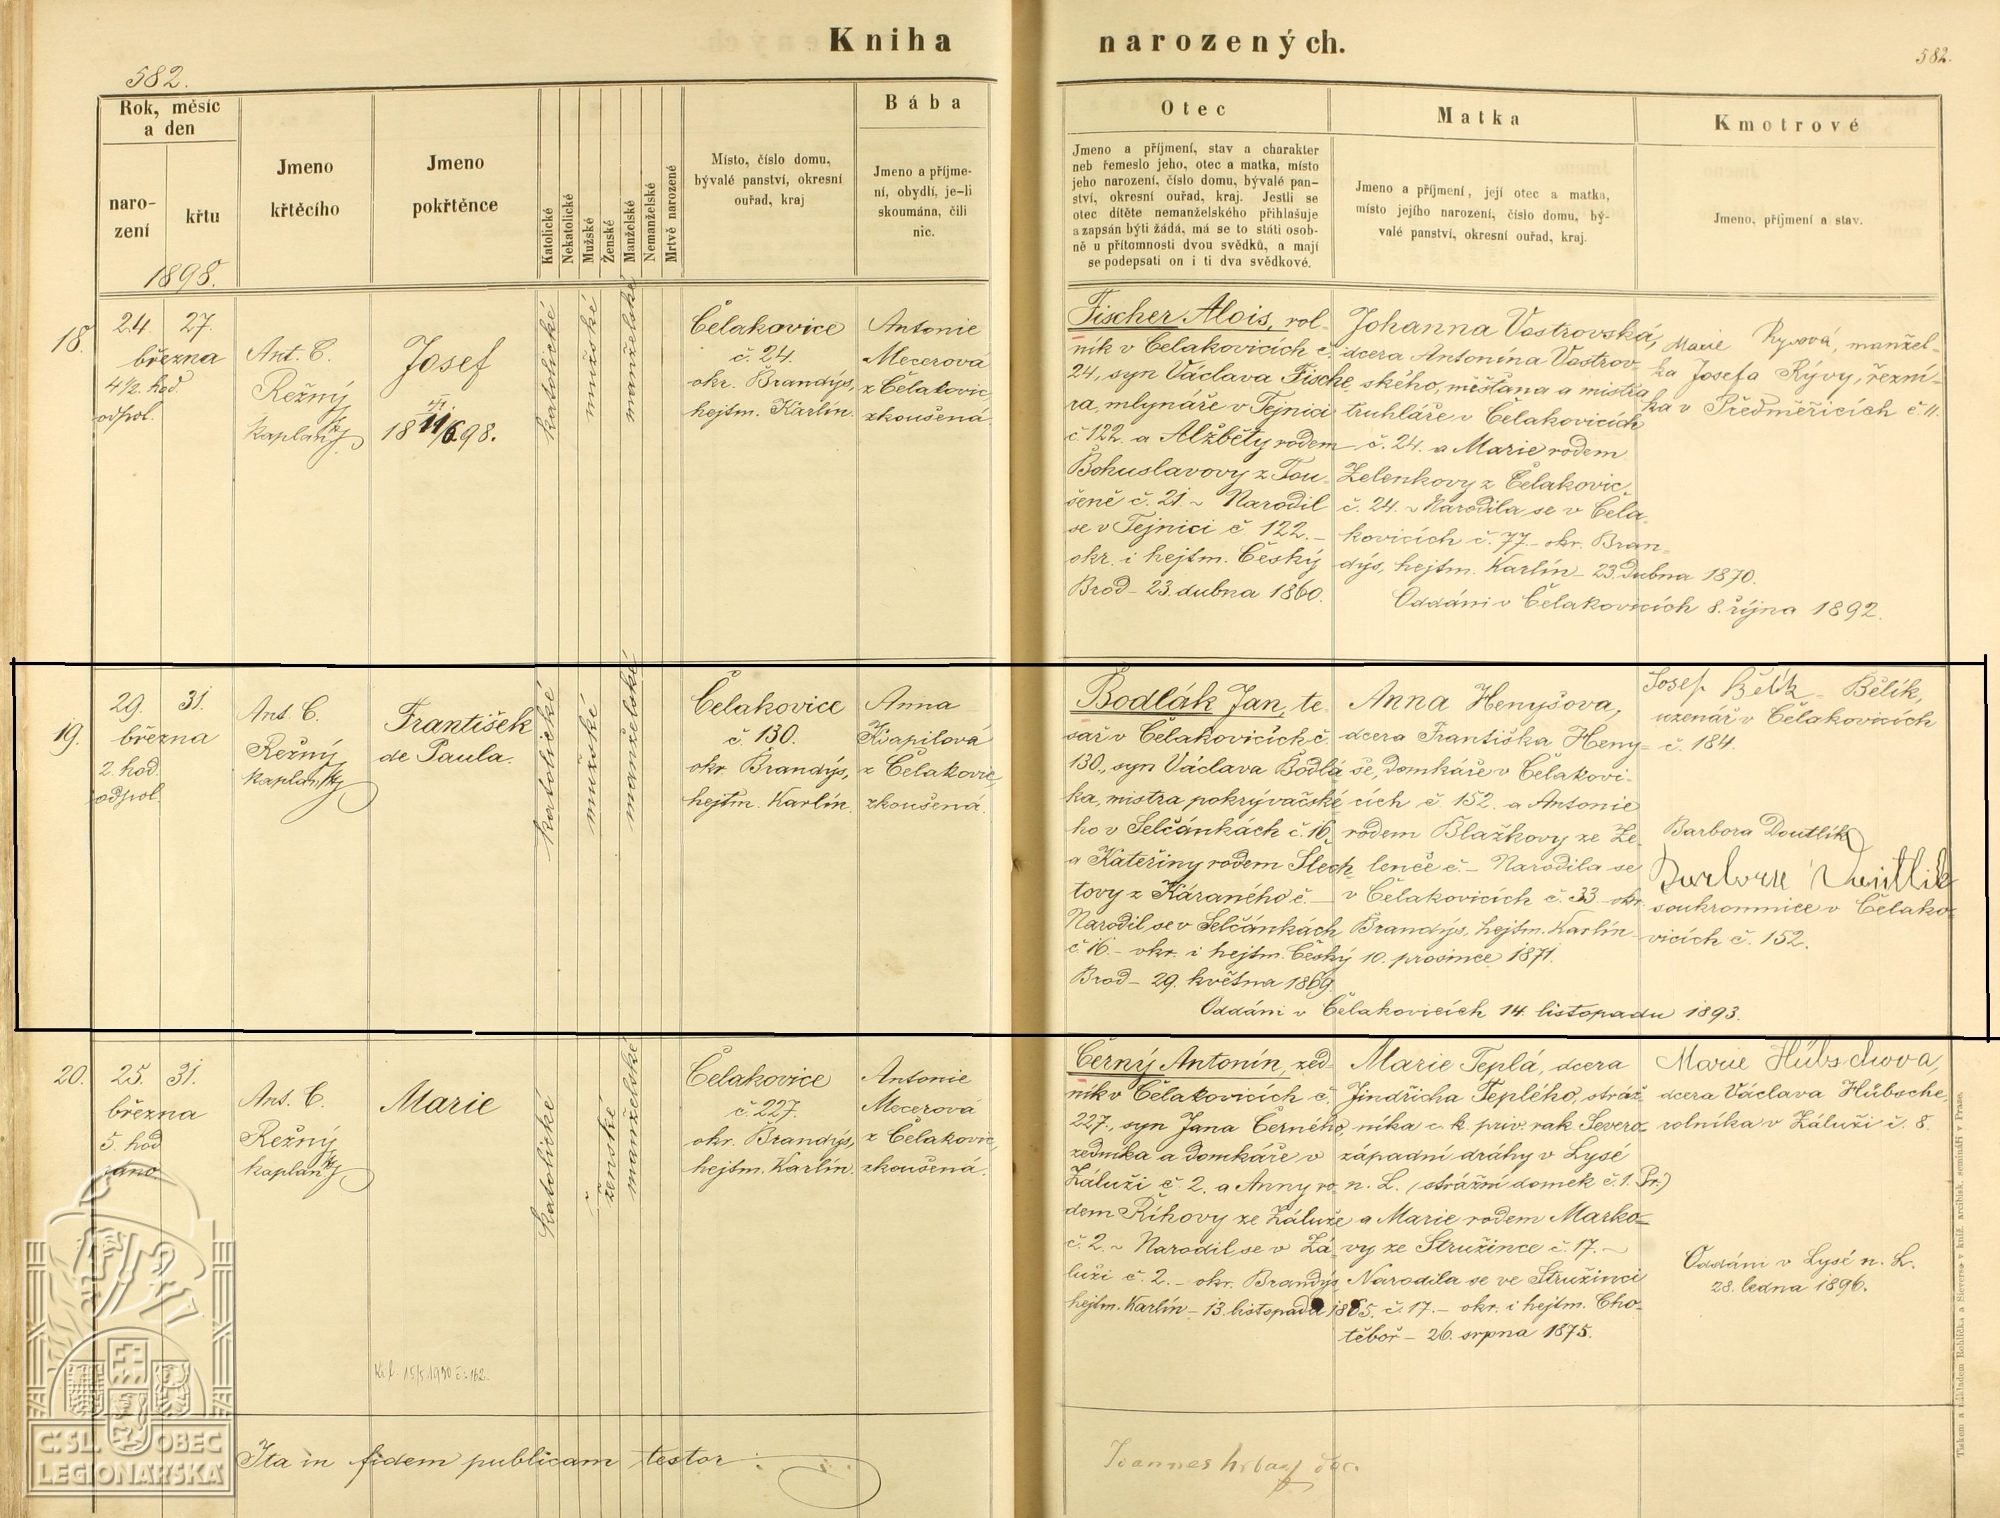 Kniha narozených.
582.
582.
Rok, měsíc
a den
naro-
zení
křtu
1898.
Jmeno
křtěcího
Jmeno
pokřtěnce
Katolické
Nekatolické
Mužské
Ženské
Manželské
Nemanželské
Mrtvě narozené
Místo, číslo domu,
bývalé panství, okresní
ouřad, kraj
Bába
Jmeno a příjme-
ní, obydlí, je-li
skoumána, čili
nic.
Otec
Jmeno a příjmení, stav a charakter
neb řemeslo jeho, otec a matka, místo
jeho narození, číslo domu, bývalé pan-
ství, okresní ouřad, kraj. Jestli se
otec dítěte nemanželského přihlašuje
a zapsán býti žádá, má se to státi osob-
ně u přítomnosti dvou svědků, a mají
se podepsati on i ti dva svědkové.
Matka
Jmeno a příjmení, její otec a matka,
místo jejího narození, číslo domu, bý-
valé panství, okresní ouřad, kraj.
Kmotrové
Jmeno, příjmení a stav.
18.
24. 27.
března
4½ hod
odpol.
Ant. C.
Režný
kaplan
Josef
katolické
mužské
manželské
Čelakovice
č. 24.
okr. Brandýs,
hejtm. Karlín.
Antonie
Mecerová
z Čelakovic,
zkoušená.
Fischer Alois, rol-
ník v Čelakovicích č.
24, syn Václava Fische
ra, mlynáře v Tejnici
č. 122. a Alžběty rodem
Bohuslavovy z Tou-
šeně č. 21. ~ Narodil
se v Tejnici č 122. –
okr. i hejtm. Český
Brod – 23. dubna 1860.
Johanna Vostrovská,
dcera Antonína Vostrov
ského, měšťana a mistra
truhláře v Čelakovicích
č. 24. a Marie rodem
Zelenkovy z Čelakovic,
č. 24. ~ Narodila se v Čela-
kovicích č. 77. – okr. Bran-
dýs, hejtm. Karlín – 23. dubna 1870.
Oddáni v Čelakovicích 8. října 1892.
Marie Rysová, manžel-
ka Josefa Rývy, řezní-
ka v Předměřicích č. 11.
19.
29. 31.
března
2. hod.
odpol.
Ant C.
Režný
kaplan
František
de Paula.
katolické
mužské
manželské
Čelakovice
č. 130.
okr. Brandýs,
hejtm. Karlín.
Anna
Kvapilová
z Čelakovic,
zkoušená.
Bodlák Jan, te-
sař v Čelakovicích č.
130., syn Václava Bodlá
ka, mistra pokrývačské
ho v Selčánkách č. 16.
a Kateřiny rodem Šlech-
tovy z Káraného č. –
Narodil se v Selčánkách
č. 16. – okr. i hejtm. Český
Brod – 29. května 1869.
Anna Henyšova,
dcera Františka Heny-
še, domkáře v Čelakovi-
cích č. 152. a Antonie
rodem Blažkovy ze Ze-
lenče č. – Narodila se
v Čelakovicích č. 33. – okr.
Brandýs, hejtm. Karlín –
10. prosince 1871.
Oddáni v Čelakovicích 14. listopadu 1893.
Josef Bělík – Bělík,
uzenář v Čelakovicích
č. 184.
Barbora Doutlík
soukromnice v Čelako-
vicích č. 152.
20.
25. 31.
března
5. hod
ráno.
Ant. C.
Režný
kaplan
Marie
katolické
ženské
manželské
Čelakovice
č. 227.
okr. Brandýs,
hejtm. Karlín.
Antonie
Mecerová
z Čelakovic,
zkoušená.
Černý Antonín, zed-
ník v Čelakovicích č.
227., syn Jana Černého,
zedníka a domkáře v
Záluží č. 2. a Anny ro-
dem Říhovy ze Záluže
č. 2. ~ Narodil se v Zá-
luží č. 2. – okr. Brandýs
hejtm. Karlín – 13. listopadu 1865.
Marie Teplá, dcera
Jindřicha Teplého, stráž-
níka c. k. priv. rak. Severo-
západní dráhy v Lysé
n. L. (strážní domek č. 1. Pr.)
a Marie rodem Marko-
vy ze Stružince č. 17. ~
Narodila se ve Stružinci
č. 17. – okr. i hejtm. Cho-
těboř – 26. srpna 1875.
Marie Hübschova,
dcera Václava Hübsche,
rolníka v Záluží č. 8.
Oddáni v Lysé n. L.
28. ledna 1896.
Ita in fidem publicam testor:
Tiskem a nákladem Rohlíčka a Sieversa v kníž. arcibisk. semináři v Praze.
Č. SL. OBEC
LEGIONÁŘSKÁ